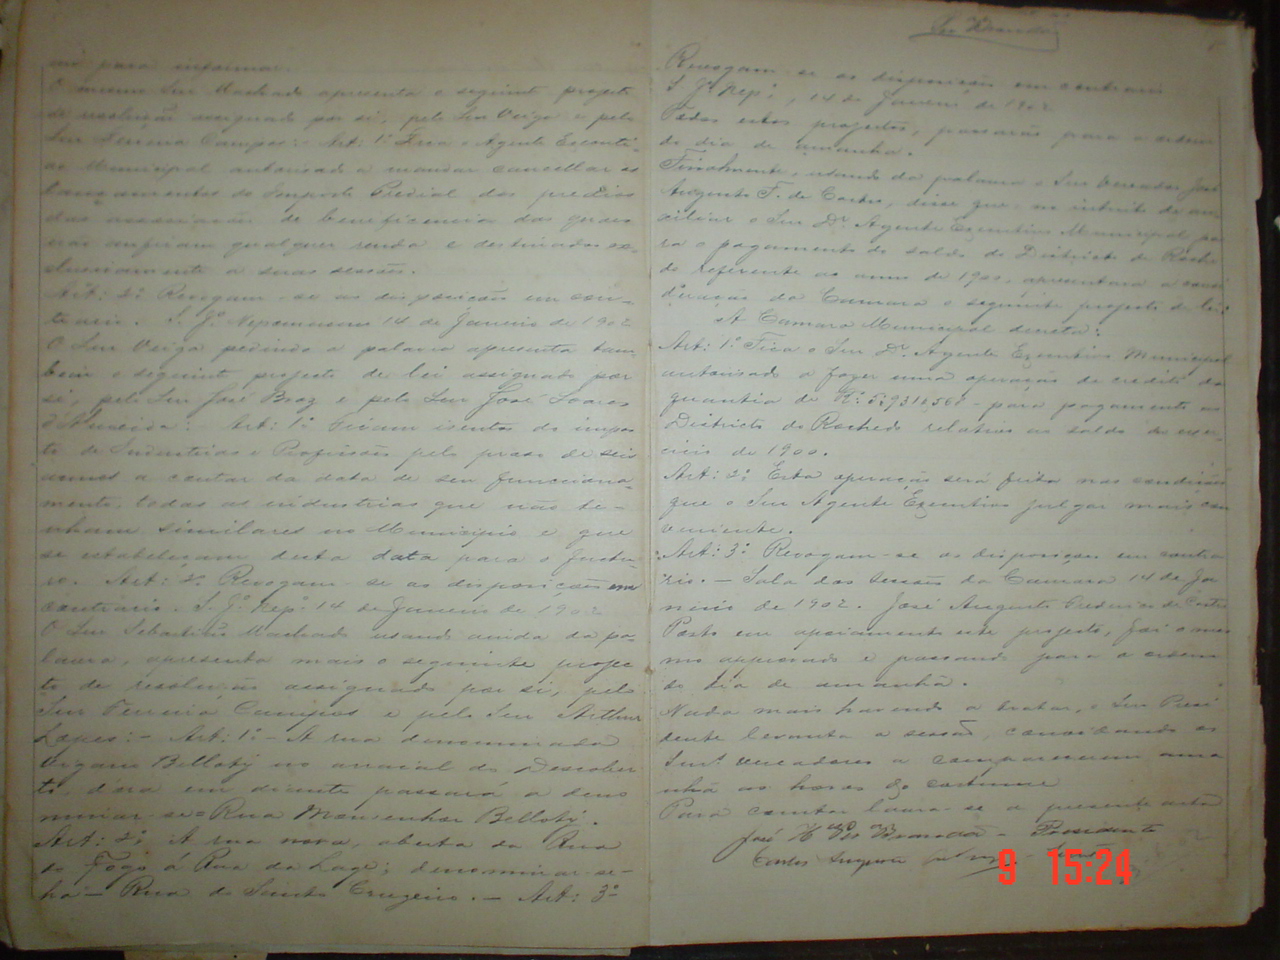 para informar.
O mesmo Snr Machado apresenta o seguinte projecto
de resolução assignado por si, pelo Snr Veiga e pelo
Snr Ferreira Campos:- Art: 1º Fica o Agente Executi-
vo Municipal autorisado a mandar cancellar os
lançamentos do Imposto Predial dos predios
das associações de beneficencia das quaes
não aufiram qualquer renda e destinados ex-
clusivamente a suas sessões.
Art: 2º Revogam-se as disposições em con-
trario. S. Jº Nepomuceno 14 de Janeiro de 1902
O Snr Veiga pedindo a palavra apresenta tam-
bem o seguinte projecto de lei assignado por
si, pelo Snr José Braz e pelo Snr José Soares
d'Almeida: Art: 1º Ficam isentas do impos
to de Industrias e Profissões pelo praso de seis
annos a contar da data de seu funcciona-
mento, todas as industrias que não te-
nham similares no Municipio e que
se estabeleçam desta data para o futu-
ro. Art: 2º Revogam-se as disposições em
contrario. S. Jº Nepº 14 de Janeiro de 1902
O Snr Sebastião Machado usando ainda da pa-
lavra, apresenta mais o seguinte projec
to de resolução assignado por si, pelo
Snr Ferreira Campos e pelo Snr Arthur
Lopes:- Art: 1º - A rua denominada
Vigario Belloty no arraial do Descober
to, d'ora em diante passará a deno
minar-se= Rua Monsenhor Belloty.
Art: 2º A rua nova, aberta da Rua
do Fogo á Rua da Lage; denominar-se-
ha - Rua do Santo Cruzeiro. - Art: 3º
Snr Brandão
Revogam-se as disposições em contrario
S. Jº Nepº, 14 de Janeiro de 1902
Todos estes projectos, passarão para a ordem
do dia de amanhã.
Finalmente, usando da palavra o Snr Vereador José
Augusto F. de Castro, disse que no intuito de au-
xiliar o Snr Dr. Agente Executivo Municipal pa
ra o pagamento do saldo do Districto de Roche
do referente ao anno de 1900, apresentava a consi
deração da Camara o seguinte projecto de lei:
A Camara Municipal decreta:
Art: 1º Fica o Snr Dr. Agente Executivo Municipal
autorisado a fazer uma operação de credito da
quantia de para pagamento ao
Districto do Rochedo relativo ao saldo do exer-
cicio de 1900.
Art: 2º Esta operação será feita nas condições
que o Snr Agente Executivo julgar mais con
veniente.
Art: 3º Revogam-se as disposições em contra
rio. - Sala das Sessões da Camara 14 de Ja
neiro de 1902. José Augusto Frederico de Castro
Posto em apoiamento este projecto, foi o mes
mo approvado e passando para a ordem
do dia de amanhã.
Nada mais havendo a tratar, o Snr Presi
dente levanta a sessão, convidando os
Snrs vereadores a comparecerem ama
nhã as horas do costume
Para constar lavra-se a presente acta
José Brandão - Presidente
Carlos
9 15:24